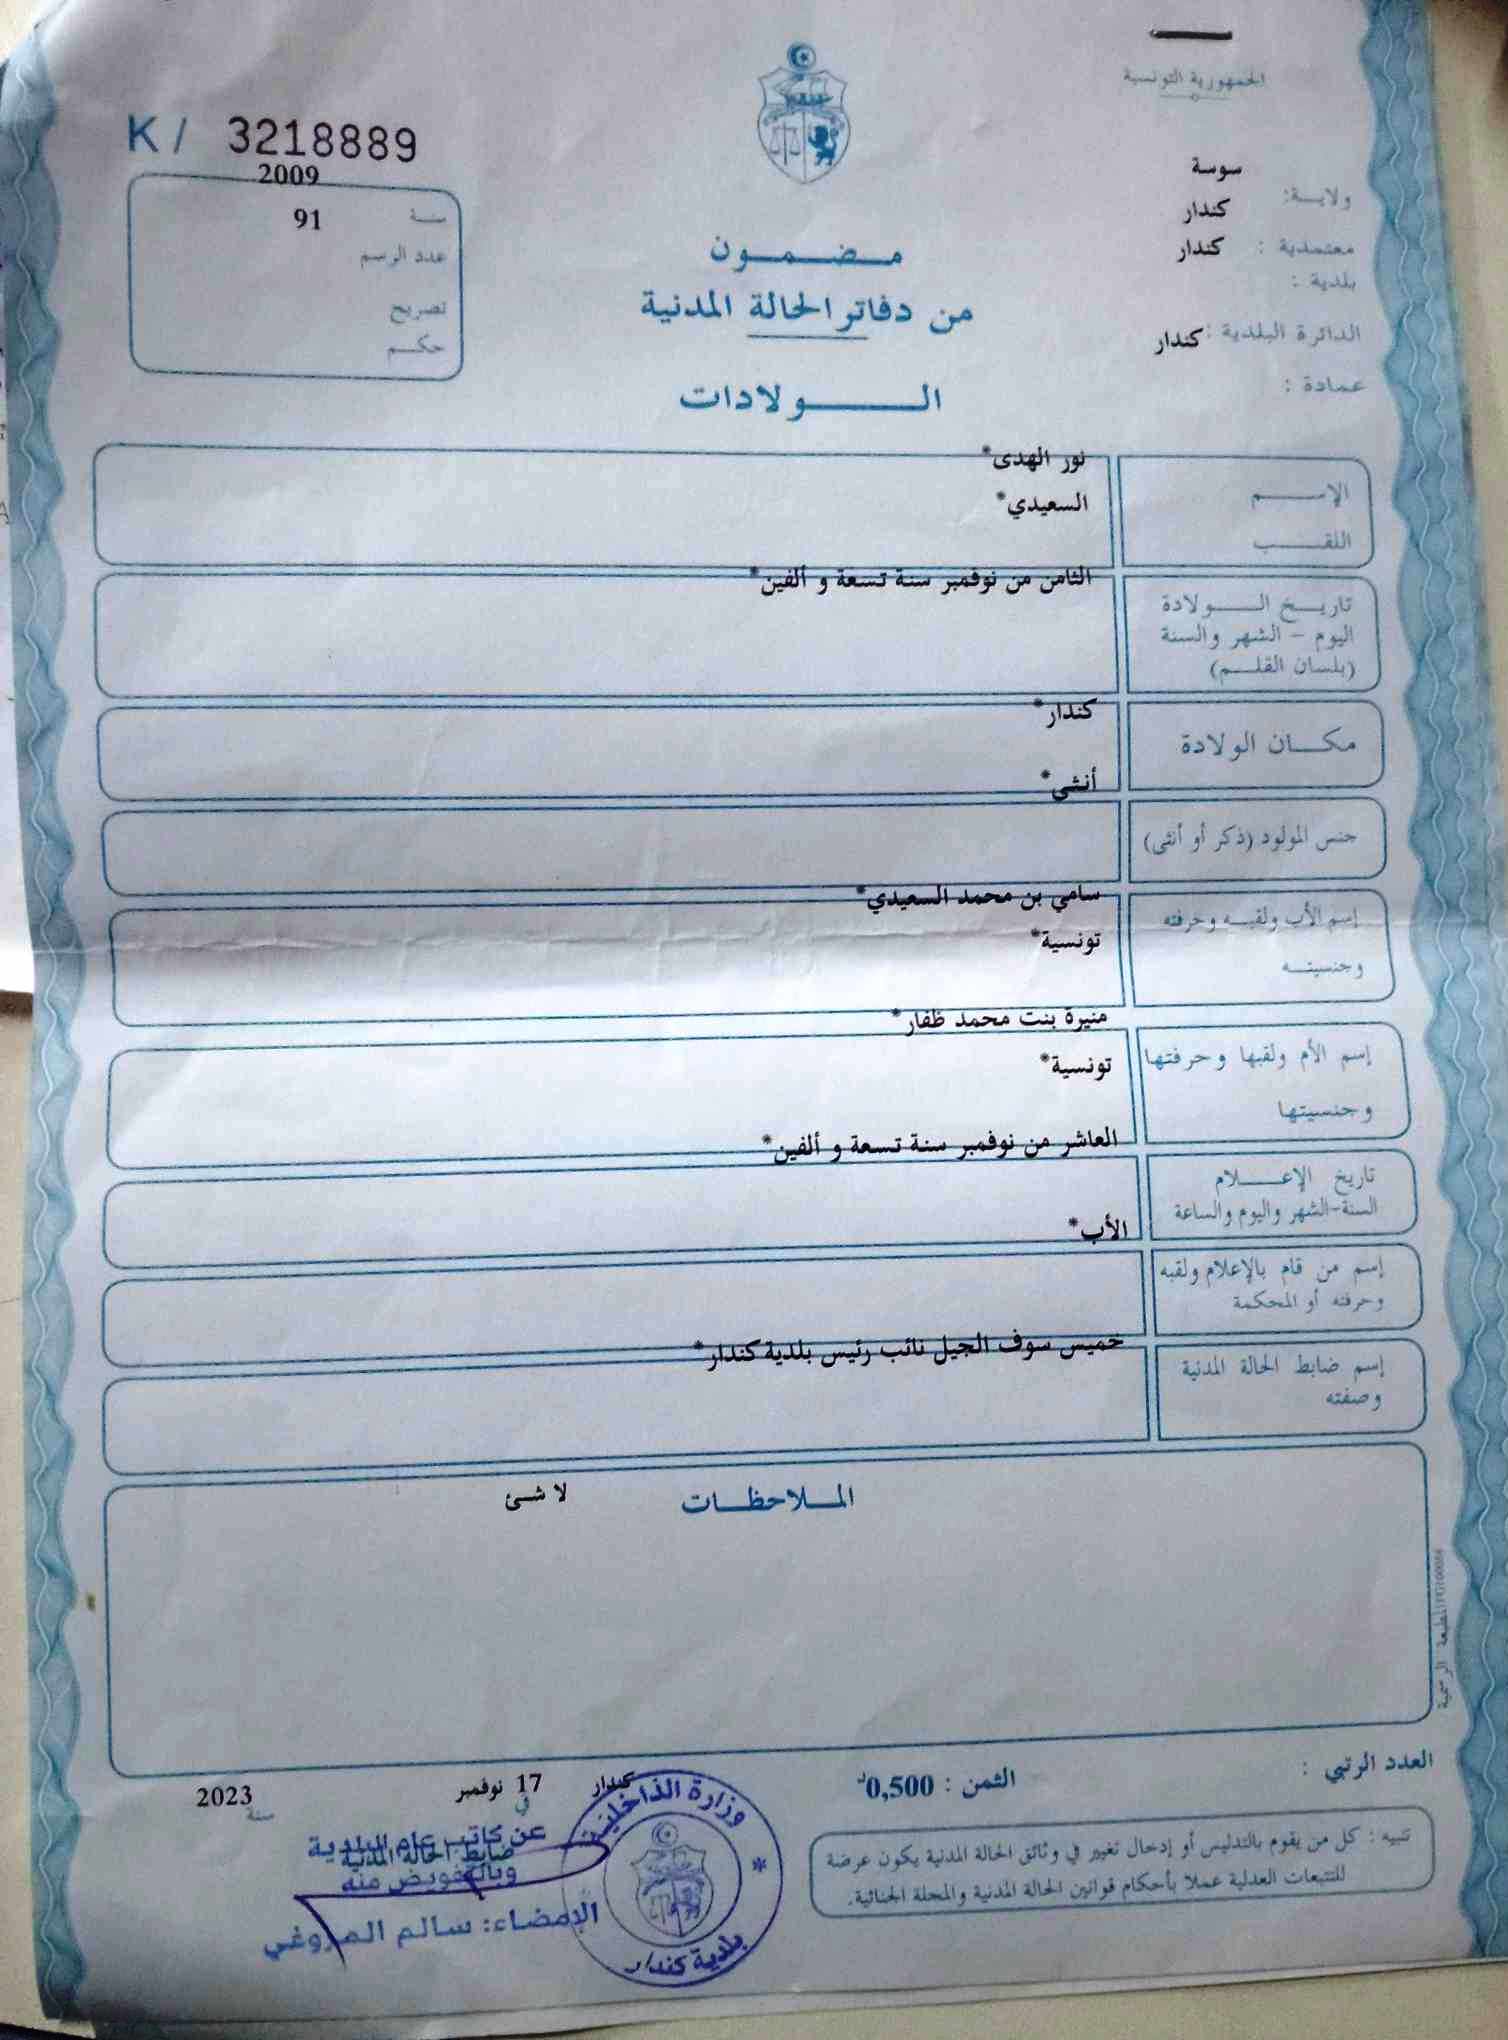 الجمهورية التونسية
K / 3218889
سوسة
ولايـــة:
كندار
معتمدية :
كندار
بلدية :
الدائرة البلدية :
كندار
عمادة :
2009
سنــة
91
عدد الرسم
تصريح
حكــم
مــضــمــون
من دفاتر الحالة المدنية
الــــولادات
نور الهدى*
الإســــم
السعيدي*
اللقـــب
الثامن من نوفمبر سنة تسعة و ألفين*
تاريــخ الـــولادة
اليوم - الشهر والسنة
(بلسان القلــم)
كندار*
مكــان الولادة
أنثى*
جنس المولود (ذكر أو أنثى)
سامي بن محمد السعيدي*
إسم الأب ولقبــه وحرفته
تونسية*
وجنسيتــه
منيرة بنت محمد ظفار*
إسم الأم ولقبها وحرفتها
تونسية*
وجنسيتها
العاشر من نوفمبر سنة تسعة و ألفين*
تاريخ الإعـــلام
السنة-الشهر واليوم والساعة
الأب*
إسم من قام بالإعلام ولقبه
وحرفته أو المحكمة
خميس سوف الجيل نائب رئيس بلدية كندار*
إسم ضابط الحالة المدنية
وصفته
المــلاحظــات
لا شئ
المطبعة الرسمية
العدد الرتبي :
الثمن : 0,500د
كندار
في
17 نوفمبر
سنة
2023
عن كاتب عام البلدية
ضابط الحالة المدنية
وبالتفويض منه
الإمضاء: سالم المروغي
وزارة الداخلية
بلدية كندار
تنبيه : كل من يقوم بالتدليس أو إدخال تغيير في وثائق الحالة المدنية يكون عرضة
للتتبعات العدلية عملا بأحكام قوانين الحالة المدنية والمجلة الجنائية.